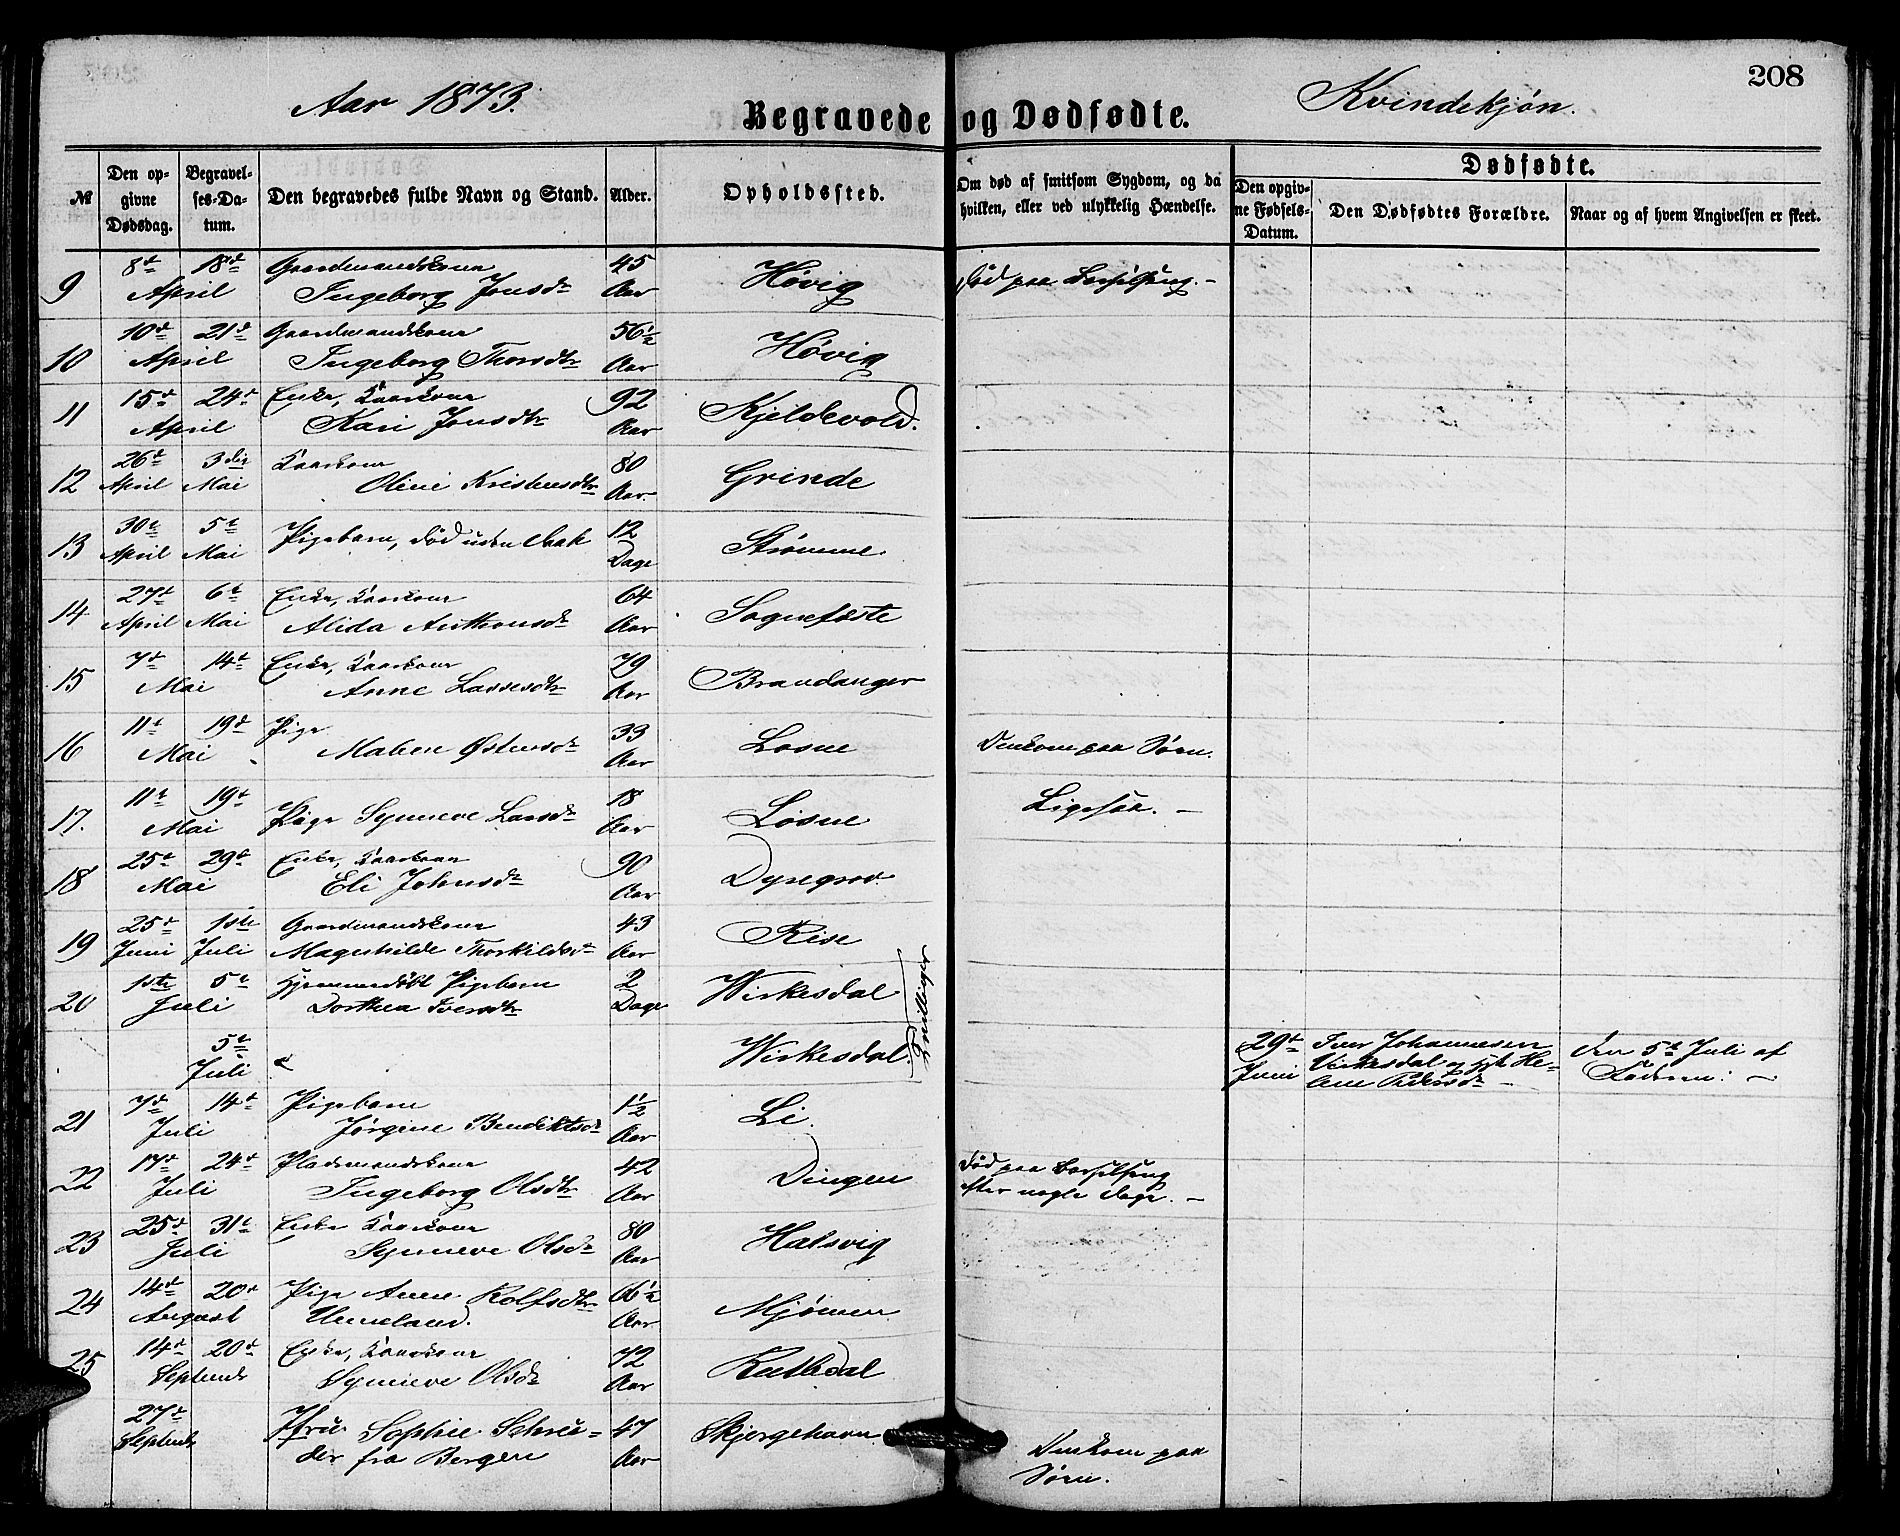 208
Aar 1873.
Kvindekjøn.
Begravede og Dødfødte.
№
Den opgivne Dødsdag.
Begravelses-Datum.
Den begravedes fulde Navn og Stand.
Alder.
Opholdssted.
Om død af smitsom Sygdom, og da hvilken, eller ved ulykkelig Hændelse.
Dødfødte.
Den opgivne Fødsels-Datum.
Den Dødfødtes Forældre.
Naar og af hvem Angivelsen er skeet.
9 8de 18de April Gaardmandskone Ingeborg Jonsdr 45 Aar Høvig Død paa Barselseng. -
10 10de 21de April Gaardmandskone Ingeborg Thorsdtr 56½ Aar Høvig
11 15de 24de April Enke, Kaarkone Kari Jonsdtr 92 Aar Kjeldevold.
12 26de April 3die Mai Kaarkone Oline Kristensdtr 80 Aar Grinde
13 30te April 5te Mai Pigebarn, død uden Daab 12 Dage Strømme
14 27de April 6te Mai Enke, Kaarkone Alida Anthonsdr 64 Aar Sognefæste
15 7de 14de Mai Enke, Kaarkone Anne Lassesdtr 79 Aar Brandanger
16 11te 19de Mai Pige Maben Østensdr 33 Aar Losne Omkom paa Søen.
17. 11te 19de Mai Pige Synneve Larsdr 18 Aar Losne Ligesaa. -
18 25de 29de Mai Enke, Kaarkone Eli Johnsdr 90 Aar Dysegrov
19 25de Juni 1ste Juli Gaardmandskone Magnhilde Thorkildsdr 43 Aar Rise
20 1ste 5te Juli Hjemmedøbt Pigebarn Dorthea Iversdtr 2 Dage Wirkesdal Tvillinger
5te Juli Wirkesdal 29de Juni Iver Johannessen Virkesdal og Hst Helene Pedersdr - den 5te Juli af Faderen: -
21 7de 14de Juli Pigebarn Jørgine Bendiktsdr 1½ Aar Li.
22 17de 24de Juli Pladsmandskone Ingeborg Olsdtr 42 Aar Dingen Død paa Barselseng efter nogle Dage. -
23 25de 31te Juli Enke Kaarkone Synneve Olsdr 80 Aar Halsvig
24 14de 20de August Pige Anne Rolfsdtr Unneland. 66½ Aar Mjømen
25 14de 20de Septemb Enke, Kaarkone Synneve Olsdr 72 Aar Kathdal
27de Septemb Fru Sophie Schreuder fra Bergen 47 Aar Skjergehavn Omkom paa Søen.